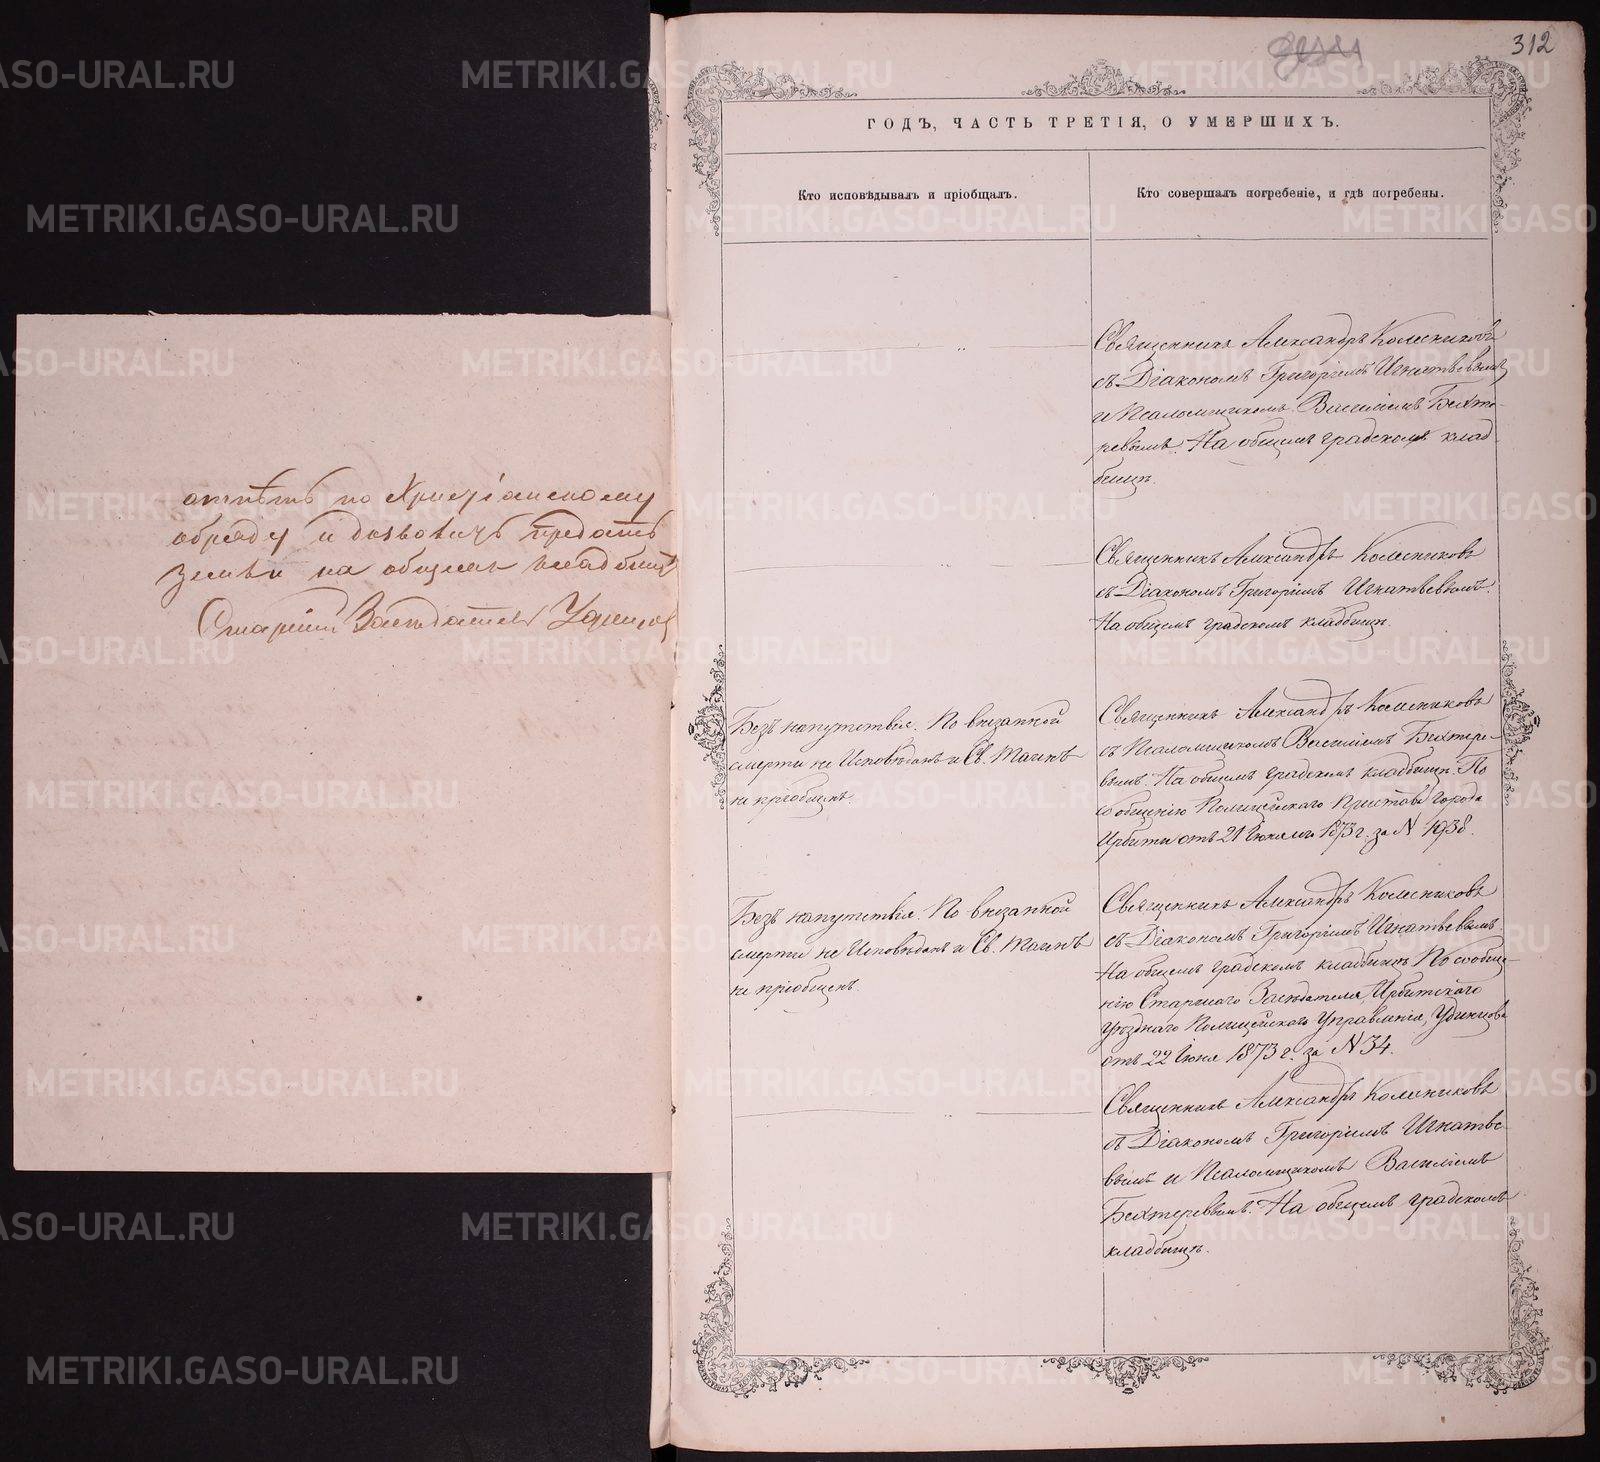 312
ГОДЪ, ЧАСТЬ ТРЕТІЯ, О УМЕРШИХЪ.
Кто исповѣдывалъ и пріобщалъ.
Кто совершалъ погребеніе, и гдѣ погребены.
отпѣть по Христіанскому
обряду и дозволить предать
земли на общемъ кладбищѣ
Старшій Засѣдатель
Священникъ Александръ Колесниковъ
съ Діакономъ Григоріемъ Игнатьевымъ
и Псаломщикомъ Василіемъ Бехте-
ревымъ. На общемъ градскомъ клад
бищѣ.
Священникъ Александръ Колесниковъ
съ Діакономъ Григоріемъ Игнатьевымъ.
На общемъ градскомъ кладбищѣ.
Безъ напутствія. По внезапной
смерти не Исповѣданъ и Св. Таинъ
не пріобщенъ.
Священникъ Александръ Колесниковъ
съ Псаломщикомъ Василіемъ Бехтере-
вымъ. На общемъ градскомъ кладбищѣ. По
сообщенію Полицейскаго Пристава города
Ирбити отъ 21 1873 г. за N 1938.
Безъ напутствія. По внезапной
смерти не Исповѣданъ и Св. Таинъ
не пріобщенъ.
Священникъ Александръ Колесниковъ
съ Діакономъ Григоріемъ Игнатьевымъ.
На общемъ градскомъ кладбищѣ По сообще-
нію Старшаго Засѣдателя, Ирбитскаго
Уѣзднаго Полицейскаго Управленія, Удинцова
отъ 22 Іюня 1873 г. за N 34.
Священникъ Александръ Колесниковъ
съ Діакономъ Григоріемъ Игнатье-
вымъ и Псаломщикомъ Василіемъ
Бехтеревымъ. На общемъ градскомъ
кладбищѣ.
METRIKI.GASO-URAL.RU